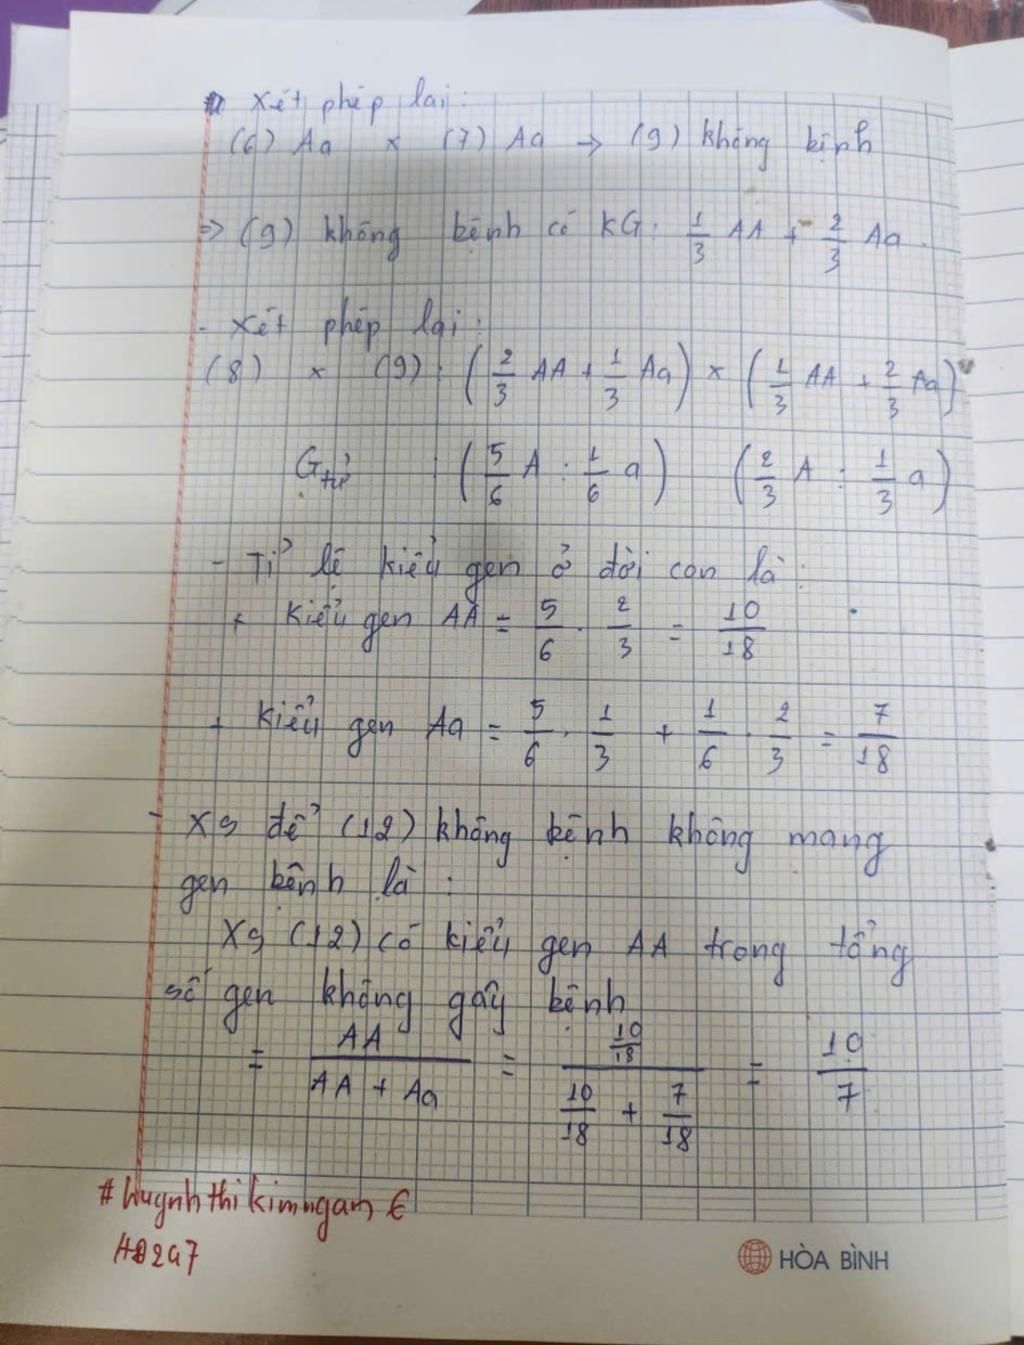 Xét phép lai:
(6) Aa × (7) Aa → (9) không bệnh
=> (9) không bệnh có KG: 1/3 AA + 2/3 Aa.
- Xét phép lai:
(8) × (9): (2/3 AA + 1/3 Aa) × (1/3 AA + 2/3 Aa)
Gtử : (5/6 A : 1/6 a) (2/3 A : 1/3 a)
- Tỉ lệ kiểu gen ở đời con là:
+ Kiểu gen AA = 5/6 . 2/3 = 10/18
+ Kiểu gen Aa = 5/6 . 1/3 + 1/6 . 2/3 = 7/18
- XS để (12) không bệnh không mang
gen bệnh là :
XS (12) có kiểu gen AA trong tổng
số gen không gây bệnh
= AA/(AA + Aa) = (10/18)/(10/18 + 7/18) = 10/7
#Huynhthikimngam €
HÒA BÌNH